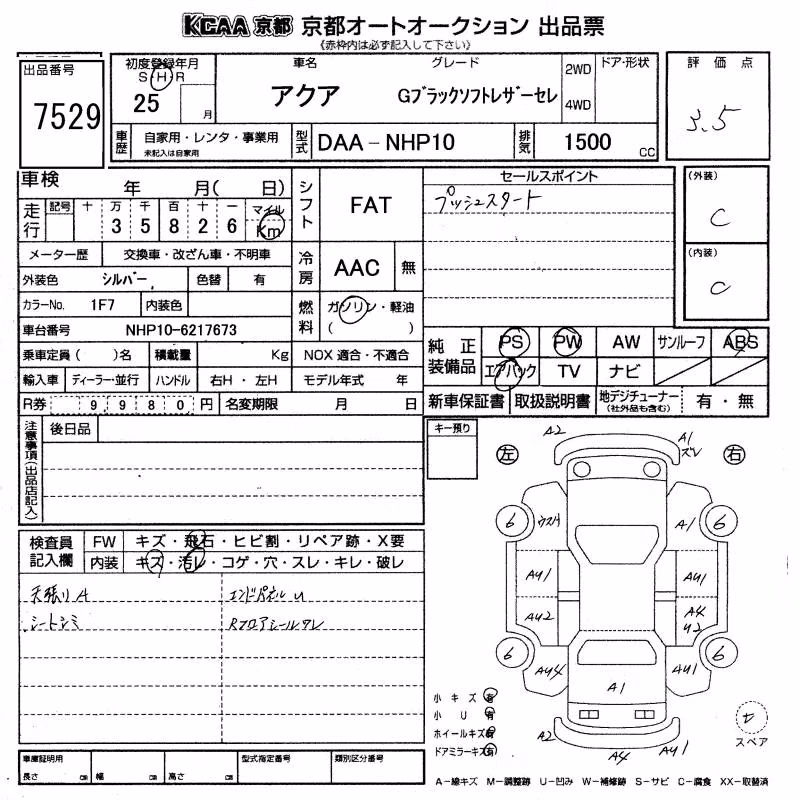 KCAA 京都 京都オートオークション 出品票
《赤枠内は必ず記入して下さい》
出品番号
7529
初度登録年月
S H R
25 月
車名
アクア
グレード
Gブラックソフトレザーセレ
2WD
4WD
ドア・形状
評価点
3.5
車歴
自家用・レンタ・事業用
未記入は自家用
型式
DAA-NHP10
排気
1500 CC
車検 年 月( 日)
走行
記号 十 万 千 百 十 一 マイル
3 5 8 2 6 Km
メーター歴 交換車・改ざん車・不明車
外装色 シルバー 色替 有
カラーNo. 1F7 内装色
車台番号 NHP10-6217673
乗車定員( )名 積載量 Kg
輸入車 ディーラー・並行 ハンドル 右H・左H
R券 9,980円 名変期限 月 日
シフト
FAT
冷房
AAC 無
燃料
ガソリン・軽油
( )
NOX 適合・不適合
モデル年式 年
セールスポイント
プッシュスタート
(外装)
C
(内装)
C
純正装備品
PS PW AW サンルーフ ABS
エアバック TV ナビ
新車保証書 取扱説明書 地デジチューナー
(社外品も含む)
有・無
注意事項(出品店記入)
後日品
キー預り
検査員記入欄
FW キズ・飛石・ヒビ割・リペア跡・X要
内装 キズ・汚レ・コゲ・穴・スレ・キレ・破レ
天張りA
エンドパネルU
シートシミ
Rフロアシールワレ
左
右
A2
A1
ズレ
6
A1
6
AU1
AU1
AU2
A4
U2
6
AU4
AU1
6
A1
A2
A4
AU1
小キズ 有
小U 有
ホイールキズ 有
ドアミラーキズ 有
スペア
車庫証明用
長さ cm 幅 cm 高さ cm
型式指定番号
類別区分番号
A-線キズ M-調整跡 U-凹み W-補修跡 S-サビ C-腐食 XX-取替済